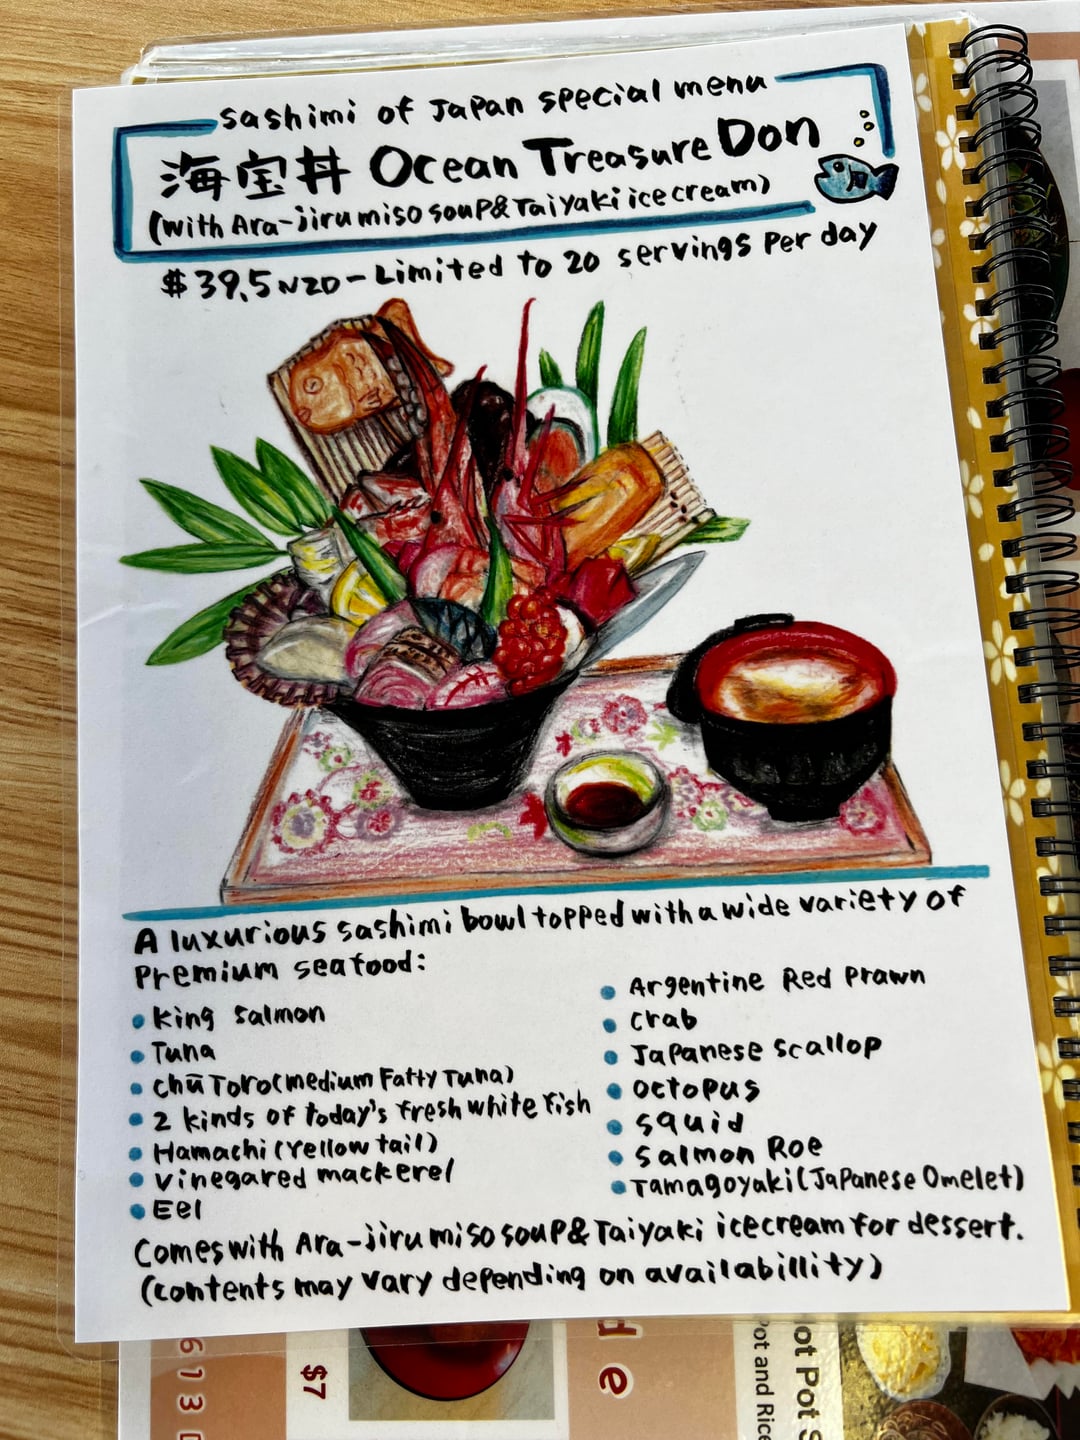 sashimi of Japan special menu
海宝丼 Ocean Treasure Don
(with Ara-jiru miso soup & Taiyaki ice cream)
$39.5 NZD - Limited to 20 servings per day
A luxurious sashimi bowl topped with a wide variety of
Premium seafood:
King Salmon
Tuna
chū Toro (medium Fatty Tuna)
2 kinds of today's fresh white fish
Hamachi (Yellow tail)
Vinegared mackerel
Eel
Argentine Red Prawn
crab
Japanese scallop
octopus
squid
Salmon Roe
Tamagoyaki (Japanese Omelet)
Comes with Ara-jiru miso soup & Taiyaki ice cream for dessert.
(contents may vary depending on availabillity)
$7
de
ot Pot S
Pot and Rice